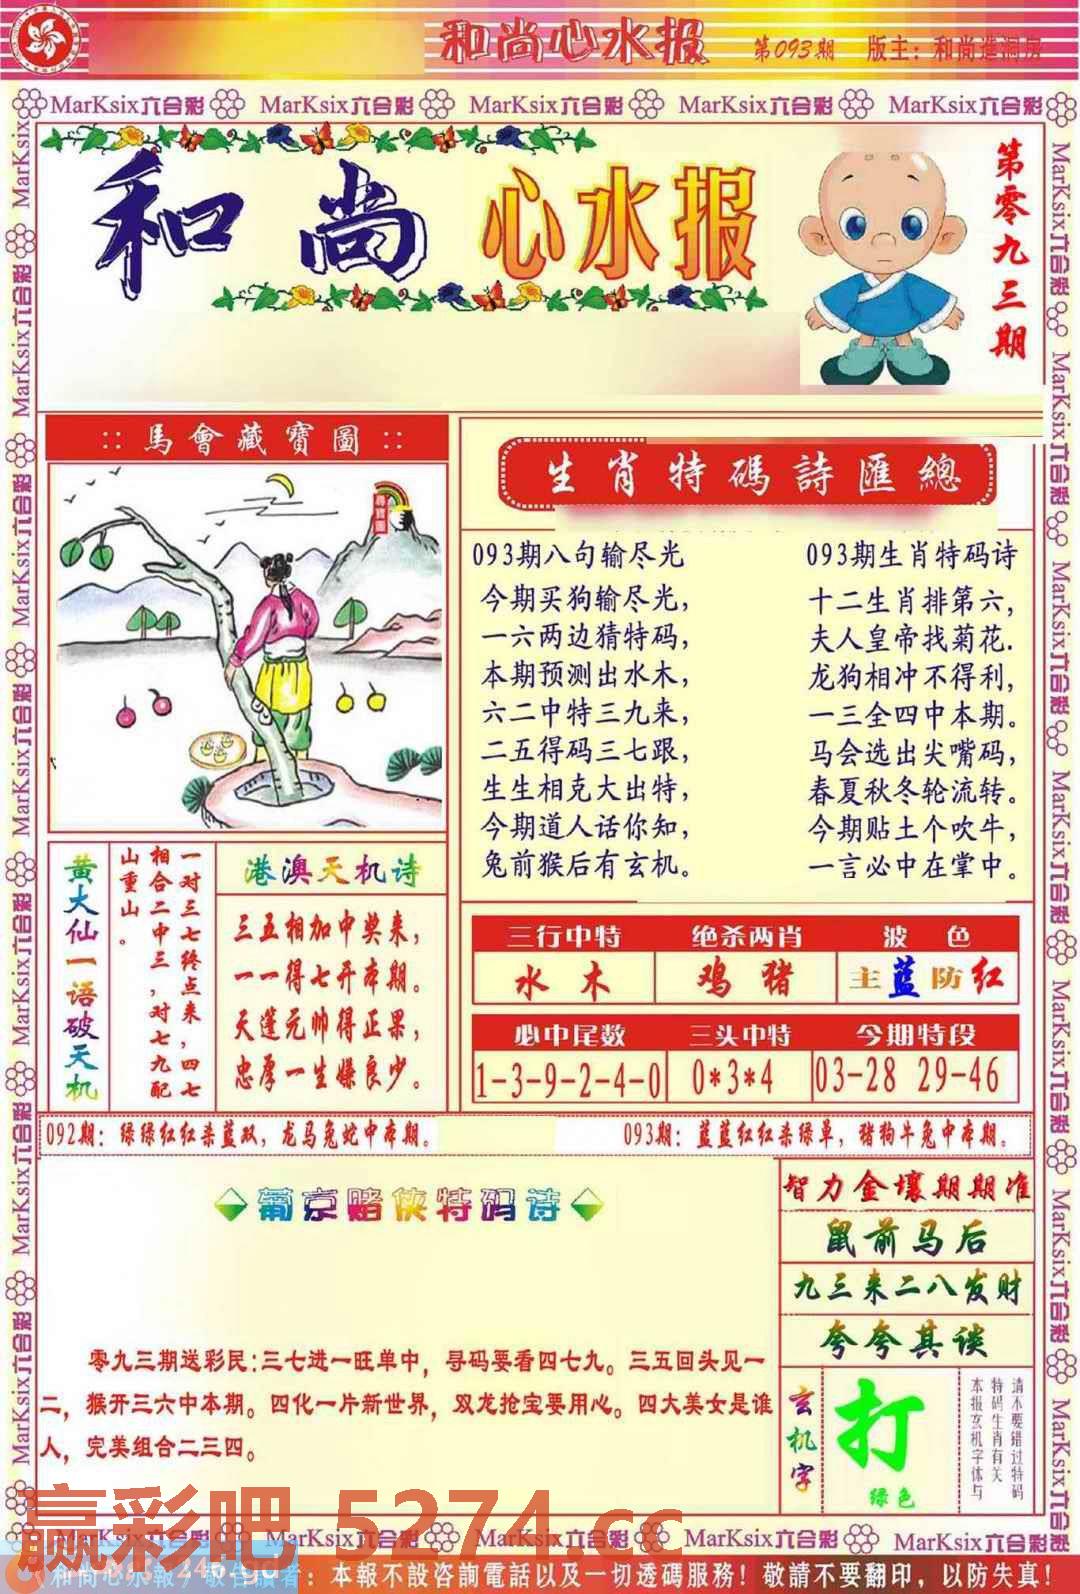 和尚心水报
第093期
版主：和尚進洞房
MarKsix六合彩 MarKsix六合彩 MarKsix六合彩 MarKsix六合彩 MarKsix六合彩
和尚心水报
第零九三期
::馬會藏寶圖::
尋寶圖
生肖特碼詩匯總
093期八句输尽光
今期买狗输尽光，
一六两边猜特码，
本期预测出水木，
六二中特三九来，
二五得码三七跟，
生生相克大出特，
今期道人话你知，
兔前猴后有玄机。
093期生肖特码诗
十二生肖排第六，
夫人皇帝找菊花.
龙狗相冲不得利，
一三全四中本期。
马会选出尖嘴码，
春夏秋冬轮流转。
今期贴土个吹牛，
一言必中在掌中。
黄大仙一语破天机
一对三七终点来，四七
相合二中三，对七九配
山重山。
港澳天机诗
三五相加中奖来，
一一得七开本期。
天蓬元帅得正果，
忠厚一生嫌良少。
三行中特 绝杀两肖 波色
水木 鸡猪 主蓝防红
必中尾数 三头中特 今期特段
1-3-9-2-4-0 0*3*4 03-28 29-46
092期：绿绿红红杀蓝双，龙马兔蛇中本期。
093期：蓝蓝红红杀绿单，猪狗牛兔中本期。
葡京赌侠特码诗
零九三期送彩民：三七进一旺单中，寻码要看四七九。三五回头见一
二，猴开三六中本期。四化一片新世界，双龙抢宝要用心。四大美女是谁
人，完美组合二三四。
智力金壤期期准
鼠前马后
九三来二八发财
夸夸其谈
玄机字
打
绿色
请不要错过特码
特码生肖有关
本报玄机字体与
赢彩吧 5274.cc
MarKsix六合彩 MarKsix六合彩 MarKsix六合彩 MarKsix六合彩 MarKsix六合彩
246.gd
和尚心水報
敬告讀者：本報不設咨詢電話以及一切透碼服務！敬請不要翻印，以防失真！